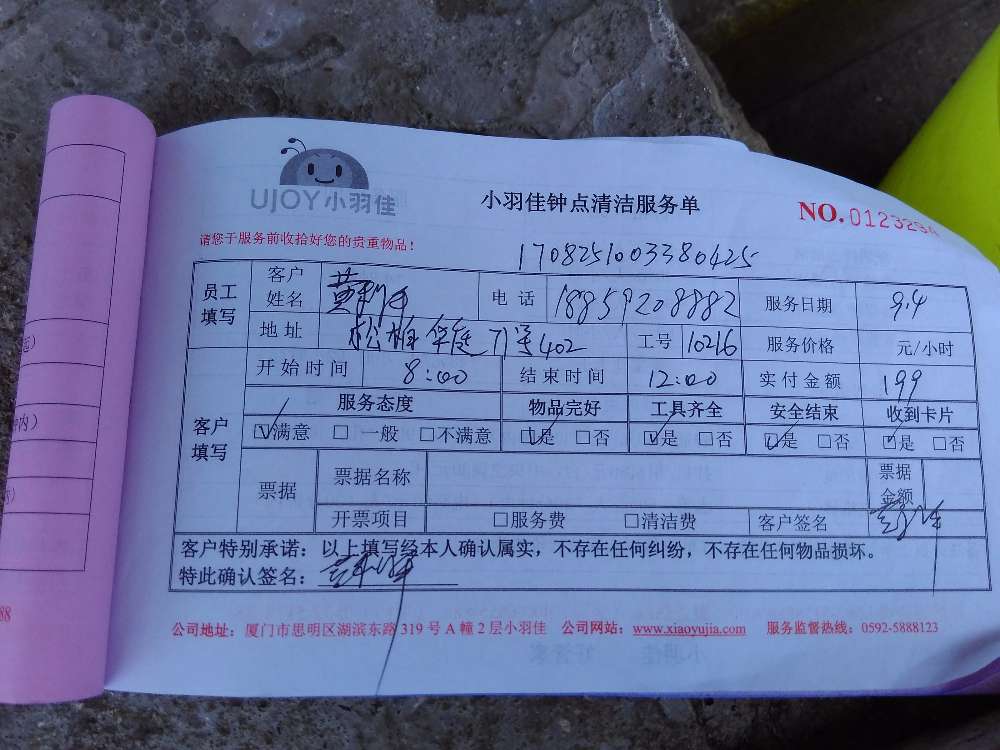 UJOY小羽佳
小羽佳钟点清洁服务单
NO.012323
请您于服务前收拾好您的贵重物品！
1708251003380425
员工填写 客户姓名 黄 电话 18859208882 服务日期 9.4
地址 松柏华庭71号402 工号 10216 服务价格 元/小时
客户填写 开始时间 8:00 结束时间 12:00 实付金额 199
服务态度 物品完好 工具齐全 安全结束 收到卡片
☑满意 □一般 □不满意 ☑是 □否 ☑是 □否 ☑是 □否 ☑是 □否
票据 票据名称 票据金额
开票项目 □服务费 □清洁费 客户签名
客户特别承诺：以上填写经本人确认属实，不存在任何纠纷，不存在任何物品损坏。
特此确认签名：
公司地址：厦门市思明区湖滨东路319号A幢2层小羽佳 公司网站：www.xiaoyujia.com 服务监督热线：0592-5888123
88